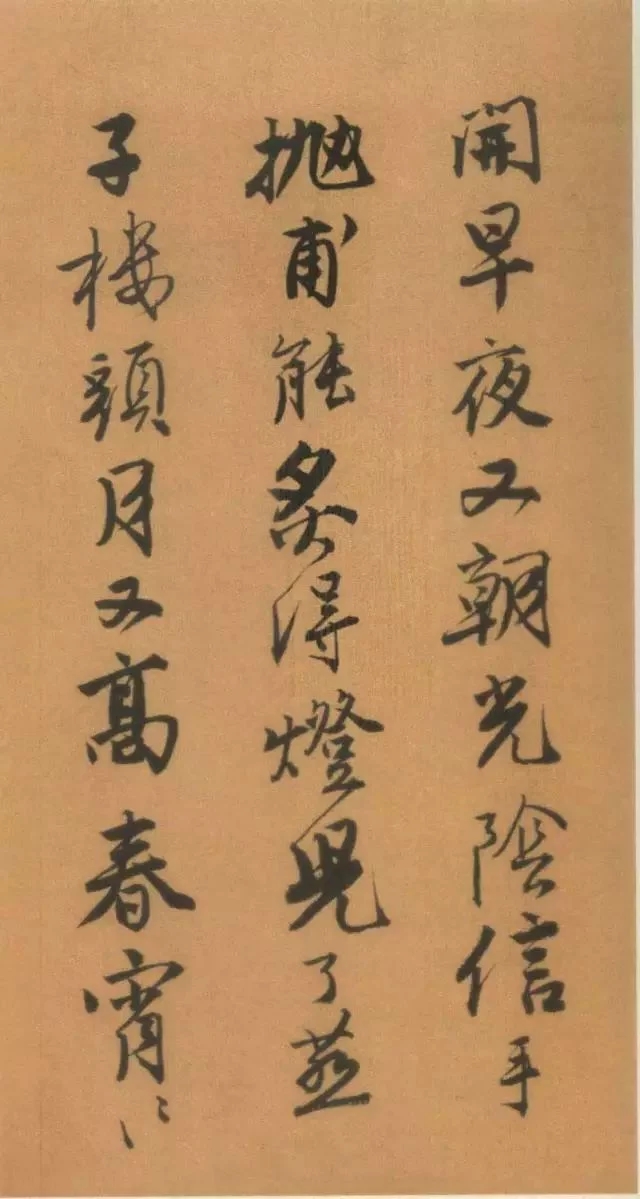 開早夜又朝光陰信手
抛甫能炙得燈兒了燕
子樓頭月又高春宵